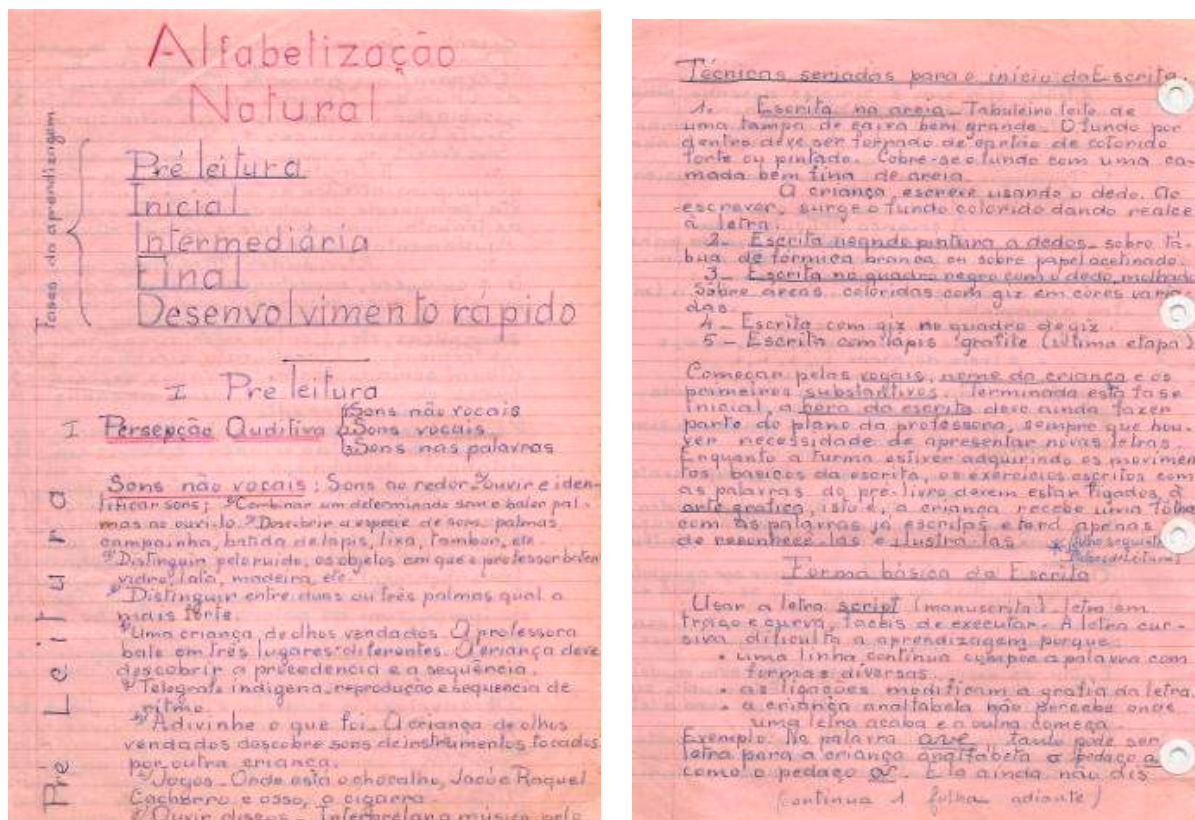 Alfabetização
Natural
Fases da aprendizagem
Pré leitura
Inicial
Intermediária
Final
Desenvolvimento rápido
I Pré leitura
I Persepção Auditiva
Sons não vocais
Sons vocais
Sons nas palavras
Pré Leitura
Sons não vocais: Sons ao redor Ouvir e iden-
tificar sons; Combinar um determinado som e bater pal-
mas ao ouvi-lo. Descobrir a especie de som: palmas,
campainha, batida de lapis, lixa, tambor, etc
Distinguir pelo ruido, os objetos em que o professor bater:
vidro, lata, madeira, etc.
Distinguir entre duas ou três palmas qual a
mais forte.
Uma criança, de olhos vendados. A professora
bate em três lugares diferentes. A criança deve
descobrir a procedencia e a sequência.
Telegrafo indígena, reprodução e sequencia de
ritmo.
Adivinhe o que foi. A criança de olhos
vendados descobre sons de instrumentos tocados
por outra criança.
Jogos - Onde está o chocalho, Jacó e Raquel
Cachorro e osso, a cigarra.
Ouvir discos - Interpretar a música pelo
Técnicas seriadas para o início da Escrita.
1. Escrita na areia - Tabuleiro feito de
uma tampa de caixa bem grande. O fundo por
dentro deve ser forrado de cartão de colorido
forte ou pintado. Cobre-se o fundo com uma ca-
mada bem fina de areia.
A criança escreve usando o dedo. Ao
escrever, surge o fundo colorido dando realce
à letra.
2- Escrita usando pintura a dedos - sobre tá-
bua de fórmica branca ou sobre papel acetinado.
3- Escrita no quadro negro com o dedo molhado
sôbre áreas coloridas com giz em cores varia-
das.
4- Escrita com giz no quadro de giz
5- Escrita com lápis grafite (última etapa)
Começar pelas vogais, nome da criança e os
primeiros substantivos. Terminada esta fase
inicial, a hora da escrita deve ainda fazer
parte do plano da professora, sempre que hou-
ver necessidade de apresentar novas letras.
Enquanto a turma estiver adquirindo os movimen-
tos básicos da escrita, os exercícios escritos com
as palavras do pré-livro devem estar ligados à
arte grafica, isto é, a criança recebe uma folha
com as palavras já escritas e terá apenas
de reconhece-las e ilustra-las
Forma básica da Escrita
Usar a letra script (manuscrita) - letra em
traço e curva, faceis de executar. A letra cur-
siva dificulta a aprendizagem porque:
• uma linha contínua compõe a palavra com
formas diversas.
• as ligações modificam a grafia da letra
• a criança analfabeta não percebe onde
uma letra acaba e a outra começa.
Exemplo: Na palavra ave tanto pode ser
letra para a criança analfabeta o pedaço a
como o pedaço. Ela ainda não dis
(continua 1 folha adiante)